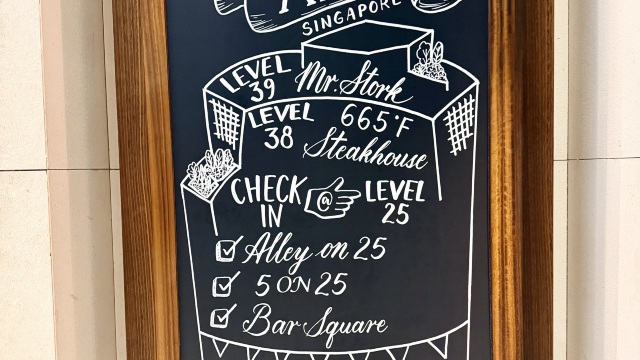 SINGAPORE
LEVEL 39 Mr. Stork
LEVEL 38 665°F Steakhouse
CHECK IN @ LEVEL 25
Alley on 25
5 ON 25
Bar Square